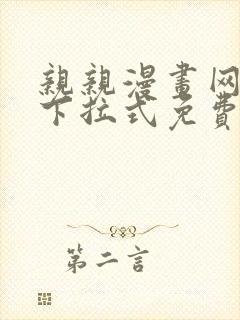 親親漫畫网
下拉式免費
第二言